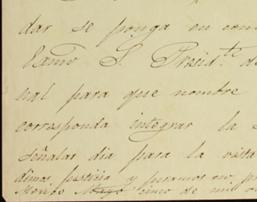 dar se ponga en con
Exmo S. Presid.te d
nal para que nombre
corresponda integrar la S
señalar dia para la vista
dimos justicia y juramos no, p
Morito Mayo cinco de mil o